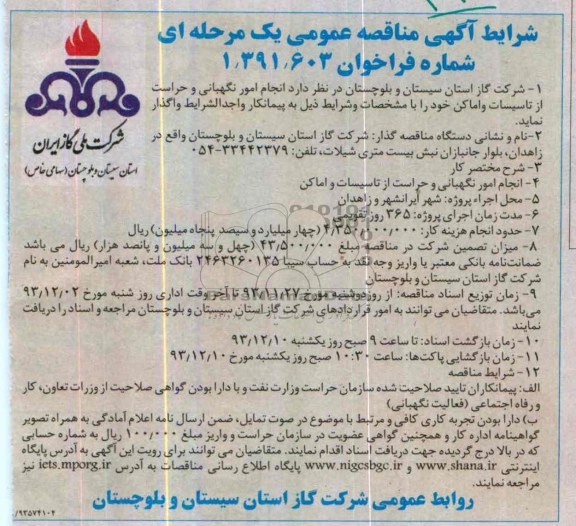 شرایط آگهی مناقصه عمومی یک مرحله ای
شماره فراخوان ۱٫۳۹۱٫۶۰۳
شرکت ملی گاز ایران
استان سیستان و بلوچستان (سهامی خاص)
۱- شرکت گاز استان سیستان و بلوچستان در نظر دارد انجام امور نگهبانی و حراست
از تاسیسات واماکن خود را با مشخصات وشرایط ذیل به پیمانکار واجدالشرایط واگذار
نماید.
۲-نام و نشانی دستگاه مناقصه گذار: شرکت گاز استان سیستان و بلوچستان واقع در
زاهدان، بلوار جانبازان نبش بیست متری شیلات، تلفن: ۳۳۴۴۲۳۷۹-۰۵۴
۳- شرح مختصر کار
۴- انجام امور نگهبانی و حراست از تاسیسات و اماکن
۵- محل اجراء پروژه: شهر ایرانشهر و زاهدان
۶- مدت زمان اجرای پروژه: ۳۶۵ روز تقویمی
۷- حدود انجام هزینه کار: ۴٫۳۵۰٫۰۰۰٫۰۰۰ (چهار میلیارد و سیصد پنجاه میلیون) ریال
۸- میزان تضمین شرکت در مناقصه مبلغ ۴۳٫۵۰۰٫۰۰۰ (چهل و سه میلیون و پانصد هزار) ریال می باشد
ضمانت‌نامه بانکی معتبر یا واریز وجه نقد به حساب سیبا ۲۴۶۳۲۶۰۱۳۵ بانک ملت، شعبه امیرالمومنین به نام
شرکت گاز استان سیستان و بلوچستان
۹- زمان توزیع اسناد مناقصه: از روز دوشنبه مورخ ۹۳٫۱۱٫۲۷ تا آخر وقت اداری روز شنبه مورخ ۹۳٫۱۲٫۰۲
می‌باشد. متقاضیان می توانند به امور قراردادهای شرکت گاز استان سیستان و بلوچستان مراجعه و اسناد را دریافت
نمایند
۱۰- زمان بازگشت اسناد: تا ساعت ۹ صبح روز یکشنبه ۹۳٫۱۲٫۱۰
۱۱- زمان بازگشایی پاکت‌ها: ساعت ۱۰:۳۰ صبح روز یکشنبه مورخ ۹۳٫۱۲٫۱۰
۱۲- شرایط مناقصه
الف: پیمانکاران تایید صلاحیت شده سازمان حراست وزارت نفت و با دارا بودن گواهی صلاحیت از وزرات تعاون، کار
و رفاه اجتماعی (فعالیت نگهبانی)
ب) دارا بودن تجربه کاری کافی و مرتبط با موضوع در صوت تمایل، ضمن ارسال نامه اعلام آمادگی به همراه تصویر
گواهینامه اداره کار و همچنین گواهی عضویت در سازمان حراست و واریز مبلغ ۱۰۰٫۰۰۰ ریال به شماره حسابی
که در بالا درج گردیده جهت دریافت اسناد اقدام نمایند. متقاضیان می توانند برای رویت این آگهی به آدرس پایگاه
اینترنتی www.shana.ir و www.nigcsbgc.ir پایگاه اطلاع رسانی مناقصات به آدرس iets.mporg.ir نیز
مراجعه نمایند.
روابط عمومی شرکت گاز استان سیستان و بلوچستان
۹۳۵۷۴۱۰۴/